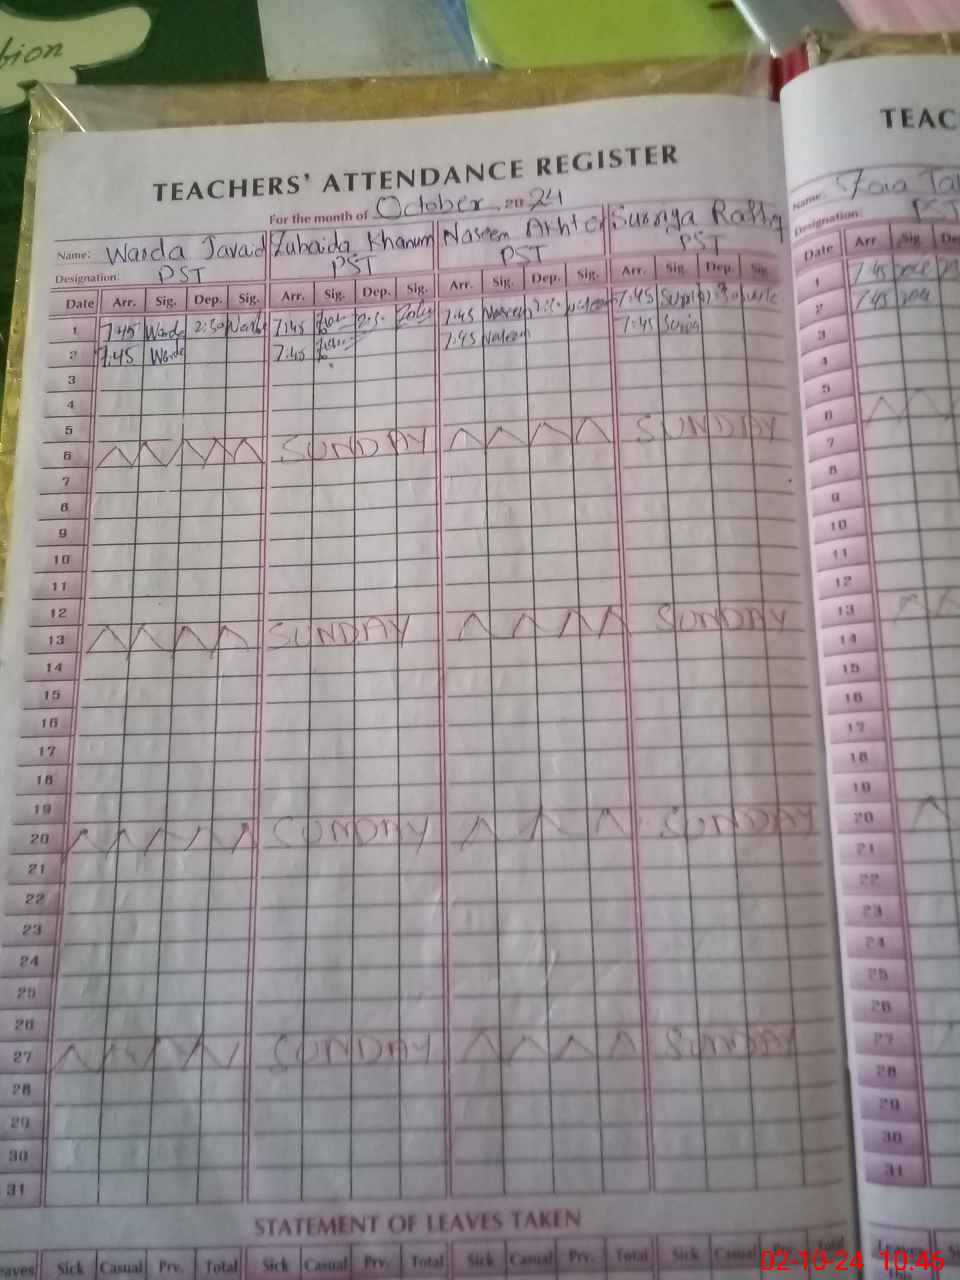 tion
TEACHERS' ATTENDANCE REGISTER
For the month of October 2024
Name: Warda Javaid Zubaida Khanum Naseem Akhter Surriya
Designation: PST PST PST PST
Date Arr. Sig. Dep. Sig. Arr. Sig. Dep. Sig. Arr. Sig. Dep. Sig. Arr. Sig. Dep. Sig.
1 7:45 Warda 2:30 Warda 7:45 7:45 Naseem 7:45
2 7:45 Warda 7:45 7:45 Naseem 7:45
3
4
5
6 SUNDAY SUNDAY
7
8
9
10
11
12
13 SUNDAY SUNDAY
14
15
16
17
18
19
20 SUNDAY SUNDAY
21
22
23
24
25
26
27 SUNDAY SUNDAY
28
29
30
31
STATEMENT OF LEAVES TAKEN
eaves Sick Casual Prv. Total Sick Casual Prv. Total Sick Casual Prv. Total Sick Casual Prv. Total
TEAC
Name:
Designation: PST
Date Arr. Sig. De
1 7:45
2 7:45
3
4
5
6
7
8
9
10
11
12
13
14
15
16
17
18
19
20
21
22
23
24
25
26
27
28
29
30
31
Leaves
02-10-24 10:46